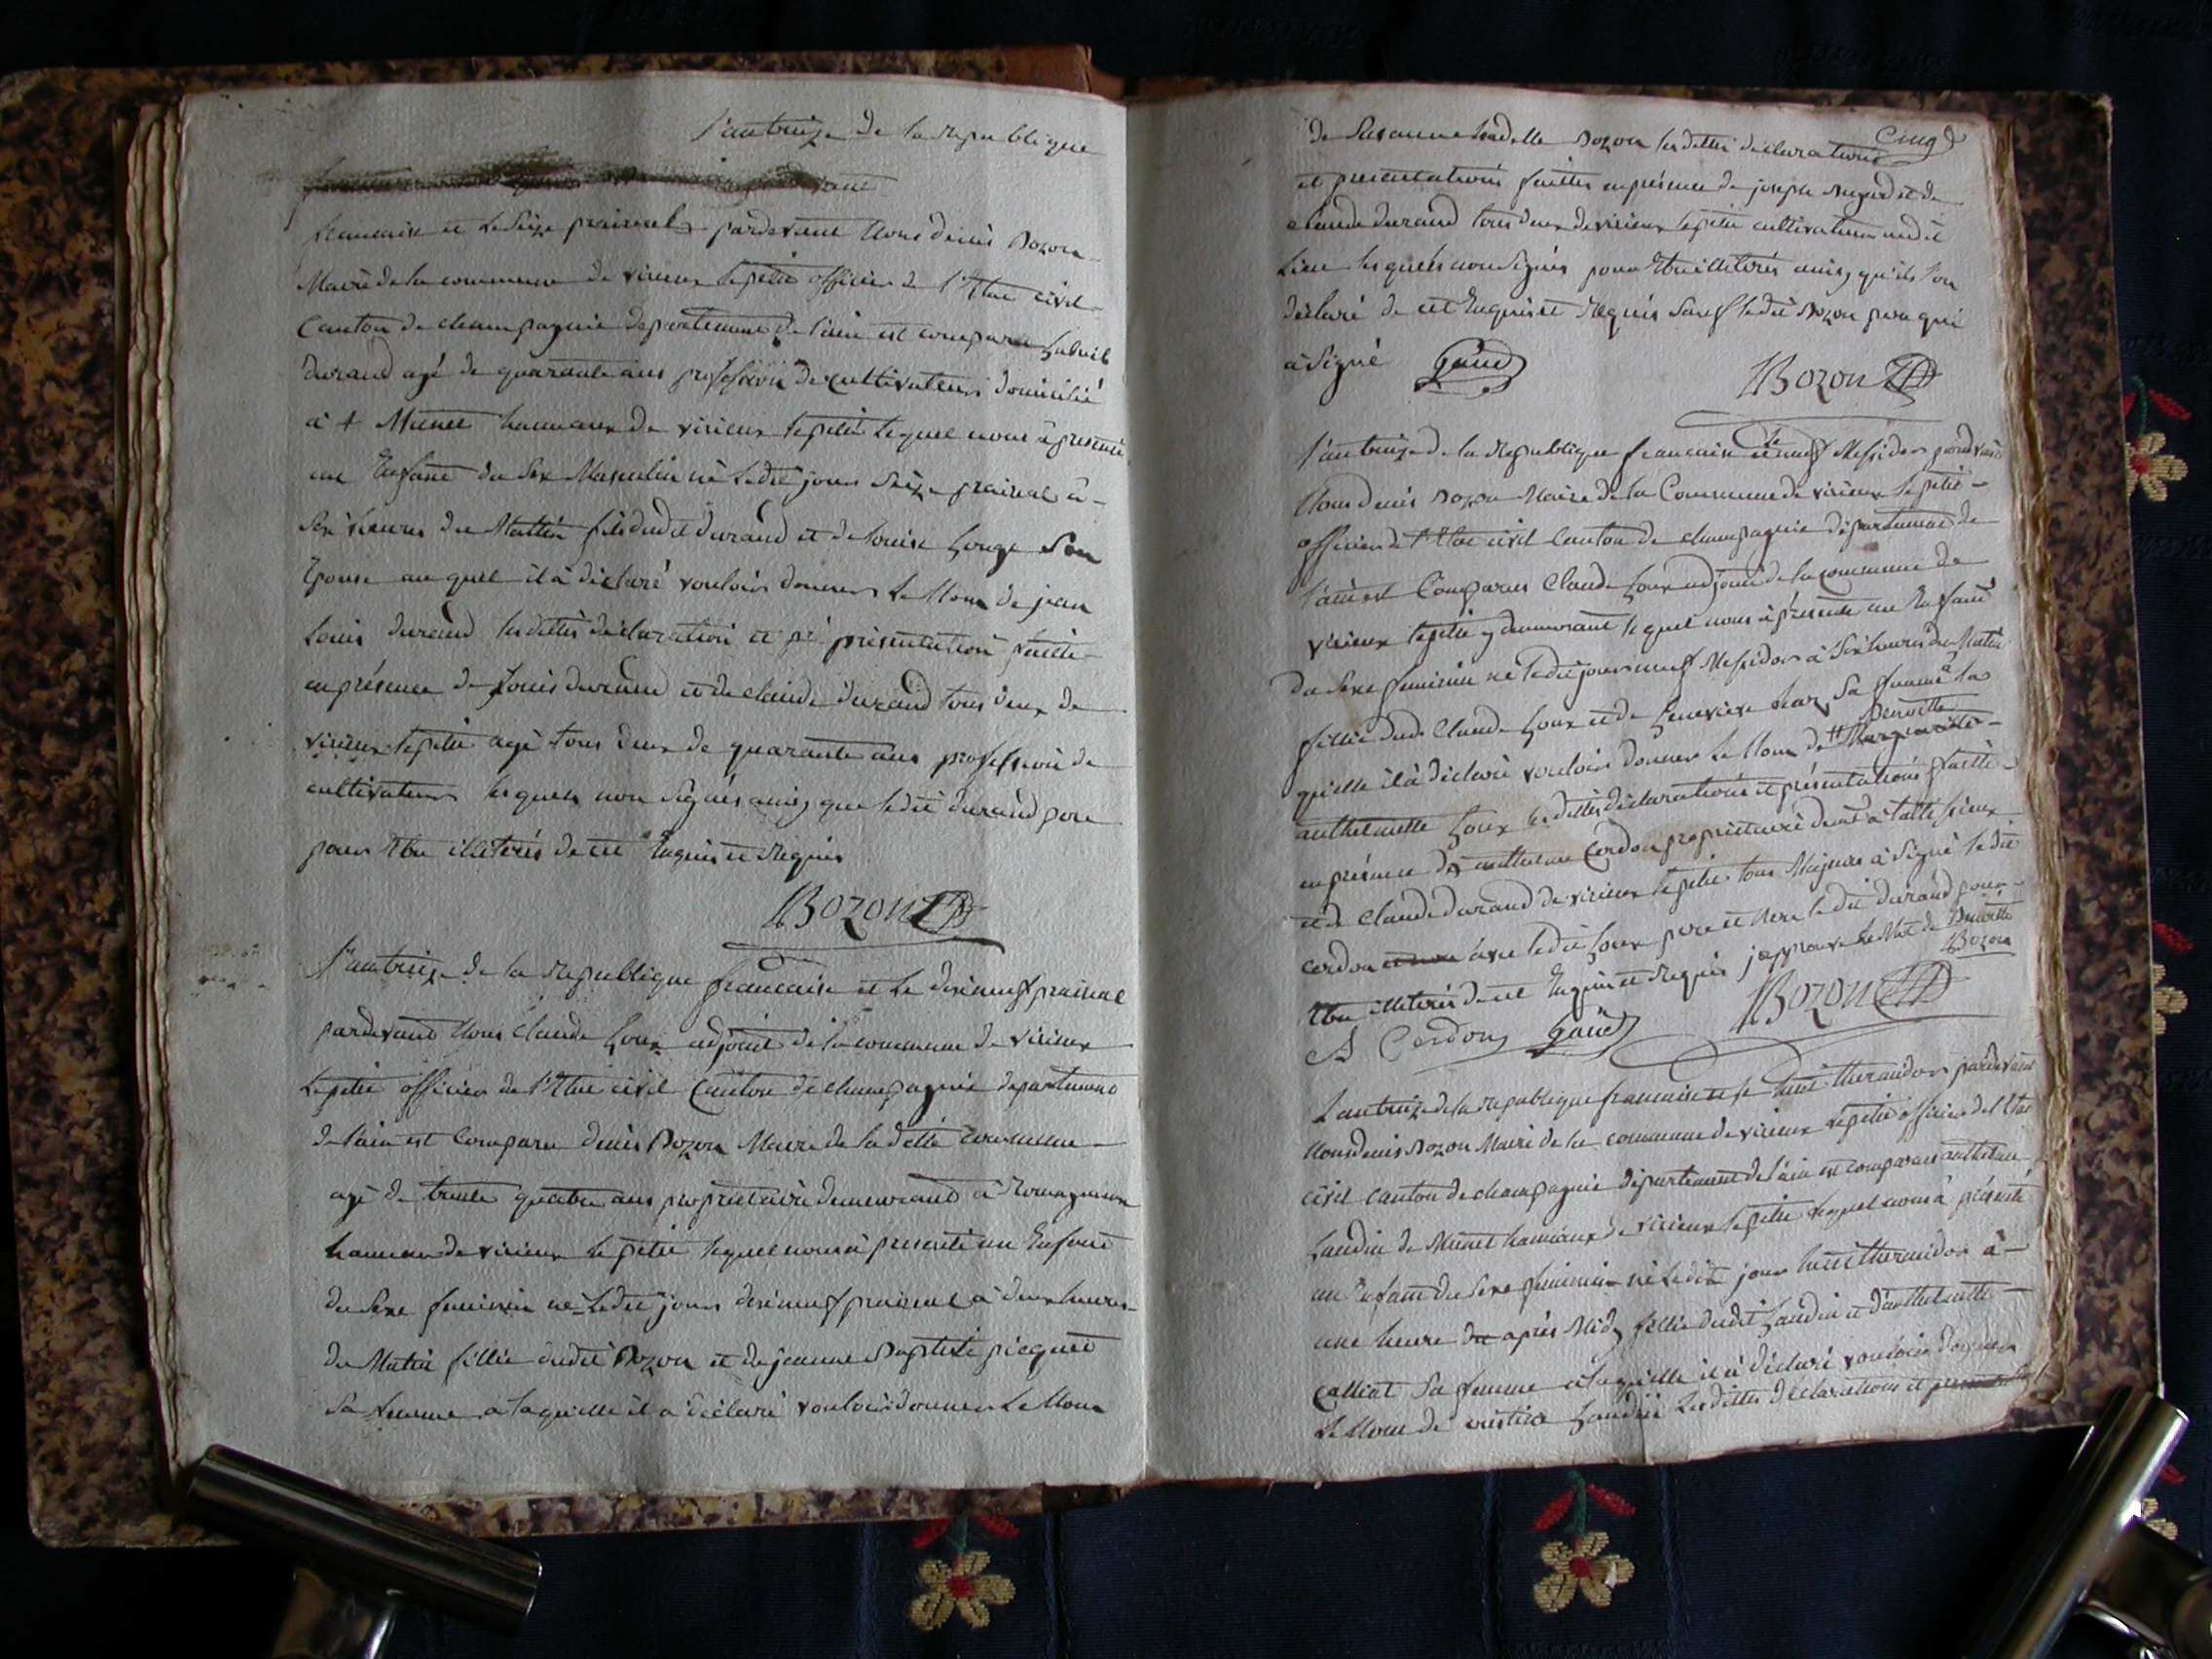 l'an treize de la Republique
francaise et le Seize prairial pardevant Nous denis Bozon
Maire de la commune de virieux le petit officier de l'Etat civil
Canton de champagnie departement de l'ain est comparu
durand agé de quarante ans profession de cultivateur domicilié
à Munet hameaux de virieux le petit lequel nous à presenté
un Enfant du Sex Masculin né Ledit jour Seize prairial à
Six heures du Mattin fils dudit durand et de Louise Son
Epouse au quel il à déclaré vouloir donner Le Nom de jean
Louis durand lesdittes déclaration et présentation faitte
en présence de Louis durand et de claude durand tous deux de
virieux le petit agé tous deux de quarante ans profession de
cultivateur lesquels non Signés ainsy que ledit durand pere
pour Etre illiterés de ce Enquis et Requis
Bozon
l'an treize de la Republique francaise et Le dixneuf prairial
pardevant Nous Claude Goux adjoint de la commune de virieux
le petit officier de l'Etat civil Canton de champagnie departement
de l'ain est Comparu denis Bozon Maire de la ditte commune
agé de trente quatre ans proprietaire demeurant à
hameau de virieux le petit lequel nous à presenté un Enfant
du Sexe feminin né Ledit jour dixneuf prairial à deux heures
du Matin fillie dudit Bozon et de jeanne Baptiste picquet
Sa femme a laquelle il a déclaré vouloir donner Le Nom
Cinq
de Susanne Bozon lesdittes déclarations
et presentations faittes en présence de joseph et de
claude durand tous deux de virieux le petit cultivateurs audit
Lieu lesquels non Signés pour Etre illiterés ainsy qu'ils l'on
déclaré de ce Enquis et Requis Sauf ledit Bozon pere qui
à Signé Bozon
l'an treize de la Republique francaise le neuf Messidor pardevant
Nous denis Bozon Maire de la Commune de virieux le petit
officier de l'Etat civil Canton de champagnie département de
l'ain est Comparus Claude Goux adjoint de la commune de
virieux le petit y demeurant lequel nous à présenté un Enfant
du Sexe feminin né ledit jour neuf Messidor à Six heures du Mattin
fillie dud. Claude Goux et de Genevieve Sa femme à la
quelle il à déclaré vouloir donner Le Nom de Benoitte
anthelmette Goux lesdittes déclarations et présentations faitte
en présence de anthelme Cerdon proprietaire
et de Claude durand de virieux le petit tous Majeurs à Signé ledit
Cerdon avec ledit Goux pere et Non le dit durand pour
Etre illiterés de ce Enquis et Requis japprouve Le Mot de Benoitte
Bozon
A Cerdon Bozon
L'an treize de la Republique francaise et le huit thermidor pardevant
Nous denis Bozon Maire de la commune de virieux le petit officier de l'Etat
civil canton de champagnie département de l'ain est comparus anthelme
Gandin de Munet hameaux de virieux le petit lequel nous à présenté
un Enfant du Sexe feminin né Ledit jour huit thermidor à
une heure apres Midy fillie dudit Gandin et d'anthelmette
Calliat Sa femme a laquelle il à déclaré vouloir donner
Le Nom de Gandin Lesdittes déclarations et